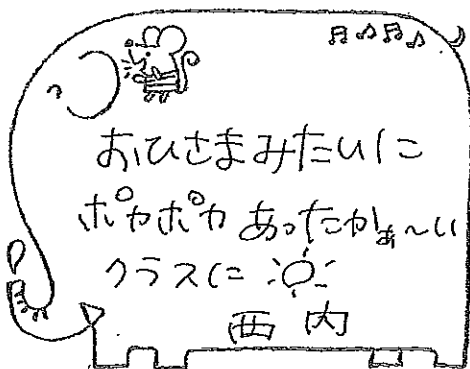 おひさまみたいに
ポカポカ あったかぁ〜い
クラスに
西内